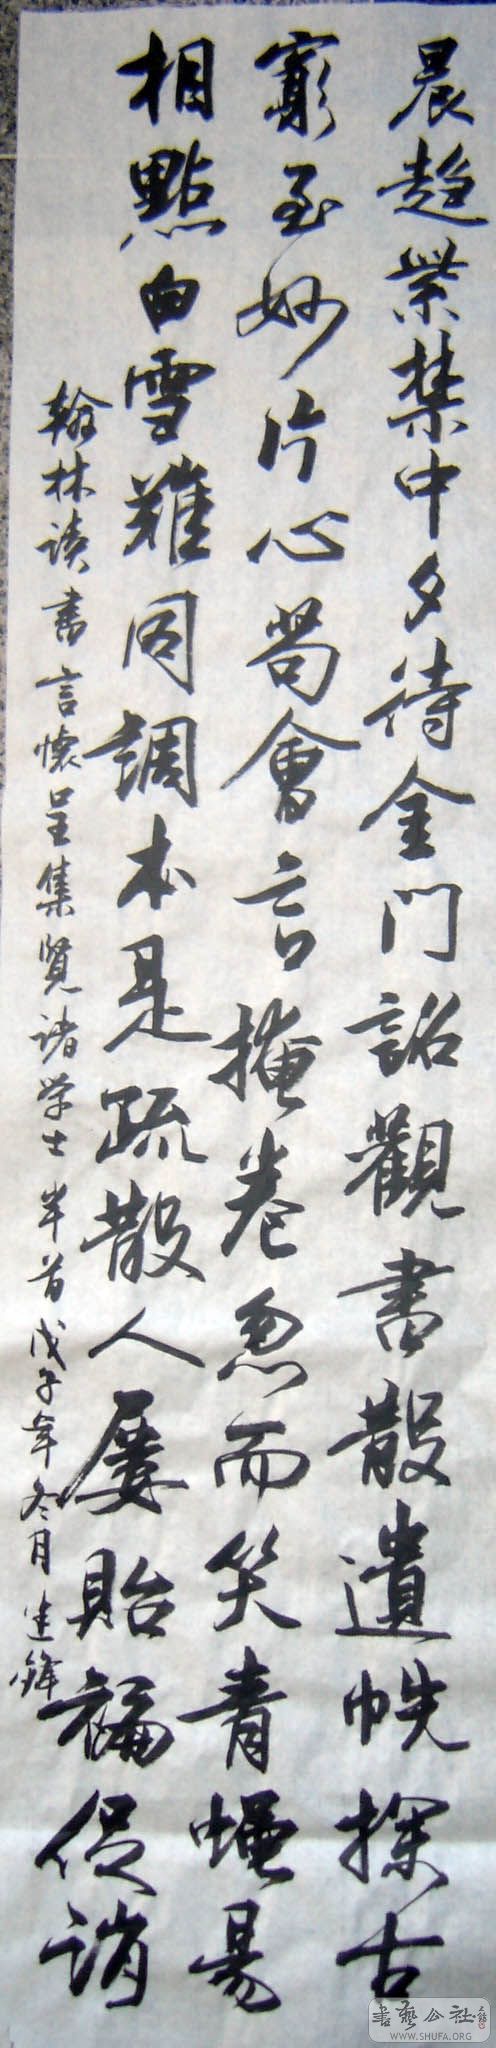 晨趨紫禁中夕待金門詔觀書散遺帙探古
窮至妙片心苟會言掩卷忽而笑青蠅易
相點白雪難同調本是疏散人屢貽褊促誚
翰林读書言懷呈集賢诸学士半首戊子年冬月建鋒
書藝公社
WWW.SHUFA.ORG